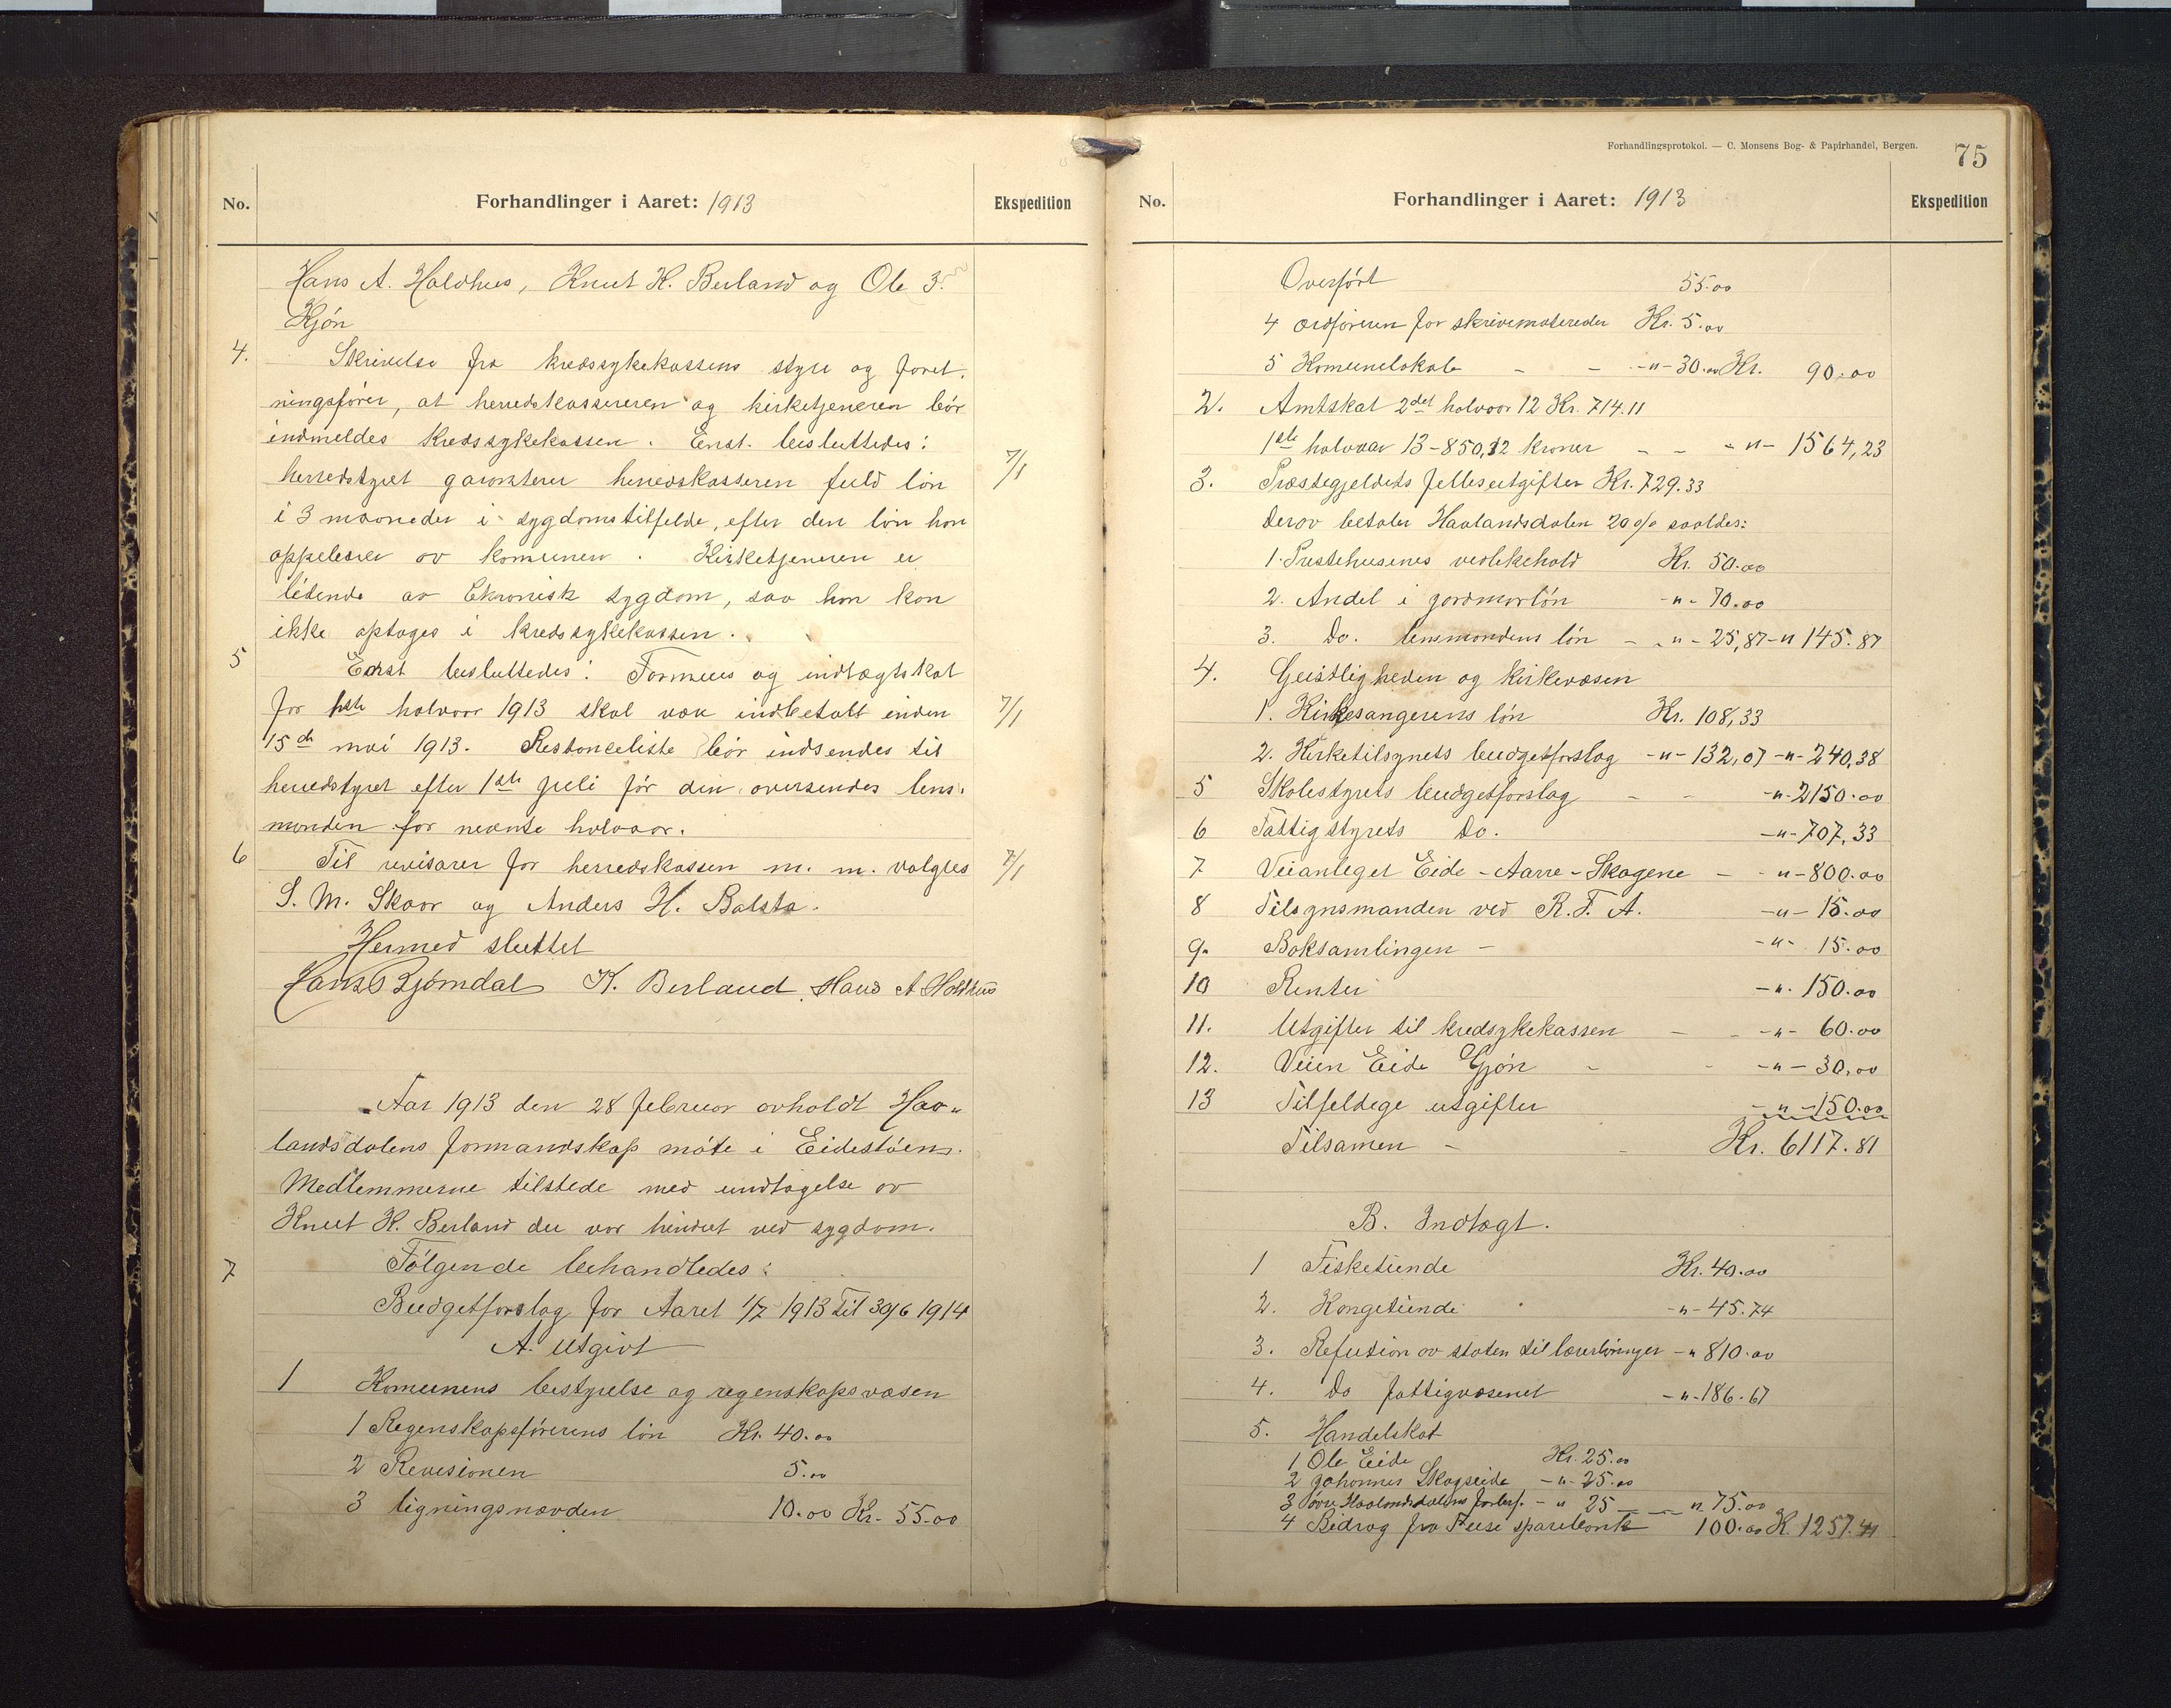 No.
Forhandlinger i Aaret: 1913
Ekspedition
Hans A. Haldhus, Knut H. Berland og Ole 3.
Kjøn
4. Skrivelse fra kredssykekassens styre og foret-
ningsfører, at herredskassereren og kirketjeneren bør
indmeldes kredssykekassen. Enst. besluttedes:
herredstyret garonterer herredskasseren fuld løn 7/1
i 3 maaneder i sygdomstilfelde, efter den løn han
oppebærer av komunen. Kirketjeneren er
lidende av kronisk sygdom, saa han kan
ikke optages i kredssykekassen.
5 Enst besluttedes: Formues og indtægtskat
for 1ste halvaar 1913 skal være indbetalt inden 7/1
15de mai 1913. Restanceliste bør indsendes til
herredstyret efter 1ste juli før den oversendes lens-
manden for nevnte halvaar.
6 Til revisorer for herredskassen m. m. valgtes 7/1
S. M. Skaar og Anders H. Balsta.
Hermed sluttet
Hans Bjørndal K. Berland, Hans A Holdhus
Aar 1913 den 28 februar avholdt Haa-
landsdalens formandskap møte i Eidestøen.
Medlemmerne tilstede med undtagelse av
Knut H. Berland der var hindret ved sygdom.
7 Følgende behandledes:
Budgetforslag for Aaret 1/7 1913 til 30/6 1914
A. Utgivt
1 Komunens bestyrelse og regenskapsvæsen
1 Regenskapsførerens løn Kr. 40.00
2 Revisionen 5.00
3 ligningsnævden 10.00 Kr. 55.00
Forhandlingsprotokol. — C. Monsens Bog- & Papirhandel, Bergen.
75
No.
Forhandlinger i Aaret: 1913
Ekspedition
Overført 55.00
4 ordføreren for skrivematereder Kr. 5.00
5 Komunelokale - - -"- 30.00 Kr. 90.00
2. Amtskat 2det halvaar 12 Kr. 714.11
1ste halvaar 13 - 850,12 kroner - - -"- 1564,23
3. Præstegjeldets fellesutgifter Kr. 729.33
Derav betaler Haalandsdalen 20 % saaledes:
1. Prestehusenes vedlikehold Kr. 50.00
2. Andel i jordmorløn -"- 70.00
3. Do. lensmandens løn - -"- 25,87 -" 145.87
4. Geistligheden og kirkevæsen
1. Kirkesangerens løn Kr. 108,33
2. Kirketilsynets budgetforslag -"- 132,07 -"- 240,38
5 Skolestyrets budgetforslag - - -"- 2150.00
6 Fattigstyrets Do. -"- 707,33
7 Veianleget Eide - Aarre - Skogene - -"- 800.00
8 Tilsynsmanden ved R. F. A. -"- 15.00
9. Boksamlingen - -"- 15.00
10 Renter -"- 150.00
11. Utgifter til kredsykekassen - - -"- 60.00
12. Veien Eide Gjøn - - -"- 30,00
13 Tilfeldige utgifter -"- 150.00
Tilsamen - - Kr. 6117.81
B. Indtægt.
1 Fisketiende Kr. 40.00
2. Kongetiende -"- 45.74
3. Refusion av staten til lærerlønninger -" 810.00
4. Do fattigvæsenet -"- 186.67
5. Handelskat
1 Ole Eide Kr. 25.00
2 Johannes Skogseide -"- 25.00
3 øvre Haalandsdalens forbrf. -" 25 - -"- 75.00
4 Bidrag fra Fuse sparebank 100.00 K. 1257.41